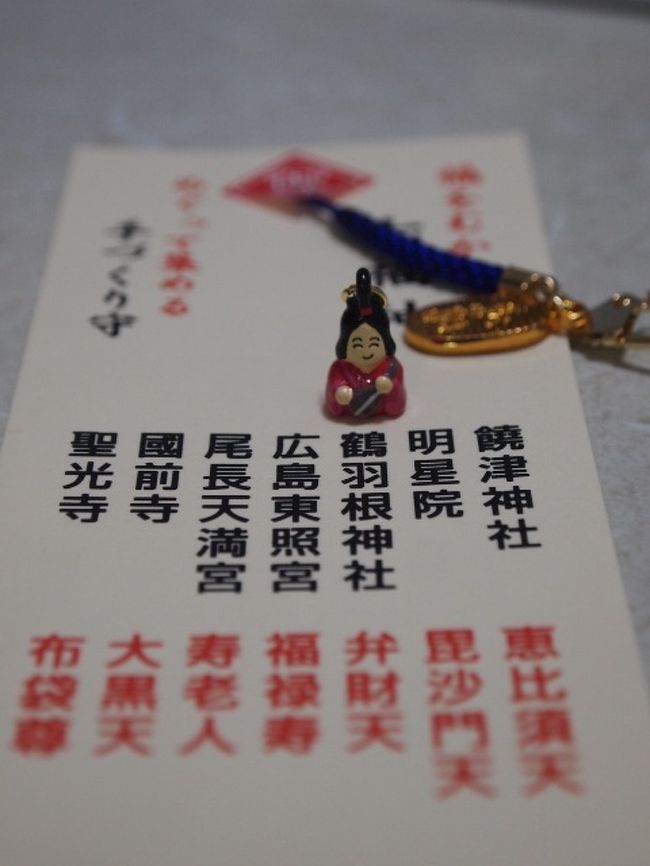 福をむか
福神
めぐって集める
手づくり守
饒津神社
明星院
鶴羽根神社
広島東照宮
尾長天満宮
國前寺
聖光寺
恵比須天
毘沙門天
弁財天
福禄寿
寿老人
大黒天
布袋尊